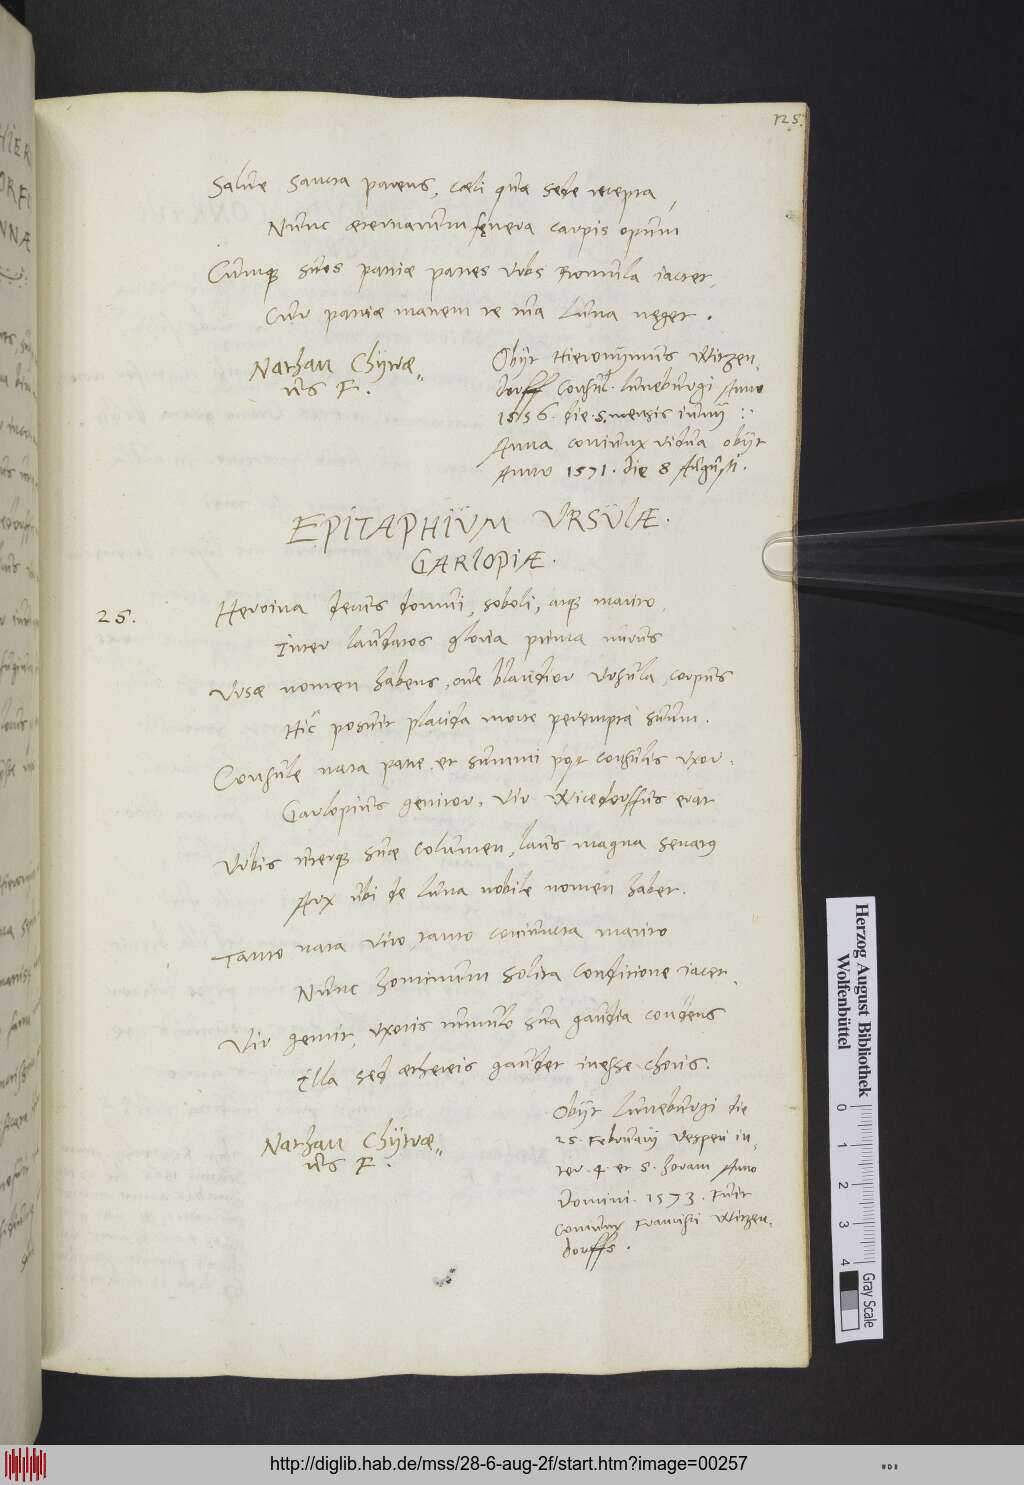 125.
Salve sancta parens, cæli quæ sede recepta,
Nunc æternarum fęnera carpis opum
Cumq; suos patriæ patres Urbs Romula iactet,
Cur patriæ matrem te tua Luna neget.
Nathan Chytræ„
us F.
Obijt Hieronÿmus Witzen„
dorff Consul. Luneburgi Anno
1556. die. 5. mensis iunij ::
Anna coniunx vidua obijt
Anno 1571. die 8 Augusti.
EPITAPHIUM URSULÆ.
GARLOPIÆ.
25.
Heroina decus domui, soboli, atq; marito,
Inter laudatos gloria prima nurus
Ursæ nomen habens, ove blandior Ursula, corpus
Hîc posuit placida morte perempta suum.
Consule nata patre et summi post consulis uxor.
Garlopius genitor, Vir Wicedorffius erat
Urbis uterq; suæ columen, laus magna senatus
Arx ubi de Luna nobile nomen habet.
Tanto nata viro, tanto coniuncta marito
Nunc hominum solita conditione iacet.
Vir gemit, uxoris tumulo sua gaudia condens
Illa sed æthereis gaudet inesse choris.
Nathan Chÿtræ„
us F.
Obijt Luneburgi die
25. Februarij Vesperi in„
ter. 4 et 5. horam Anno
Domini. 1573. Fuit
coniunx Francisci Witzen„
dorffs.
Herzog August Bibliothek
Wolfenbüttel
0 1 2 3 4
Gray Scale
http://diglib.hab.de/mss/28-6-aug-2f/start.htm?image=00257